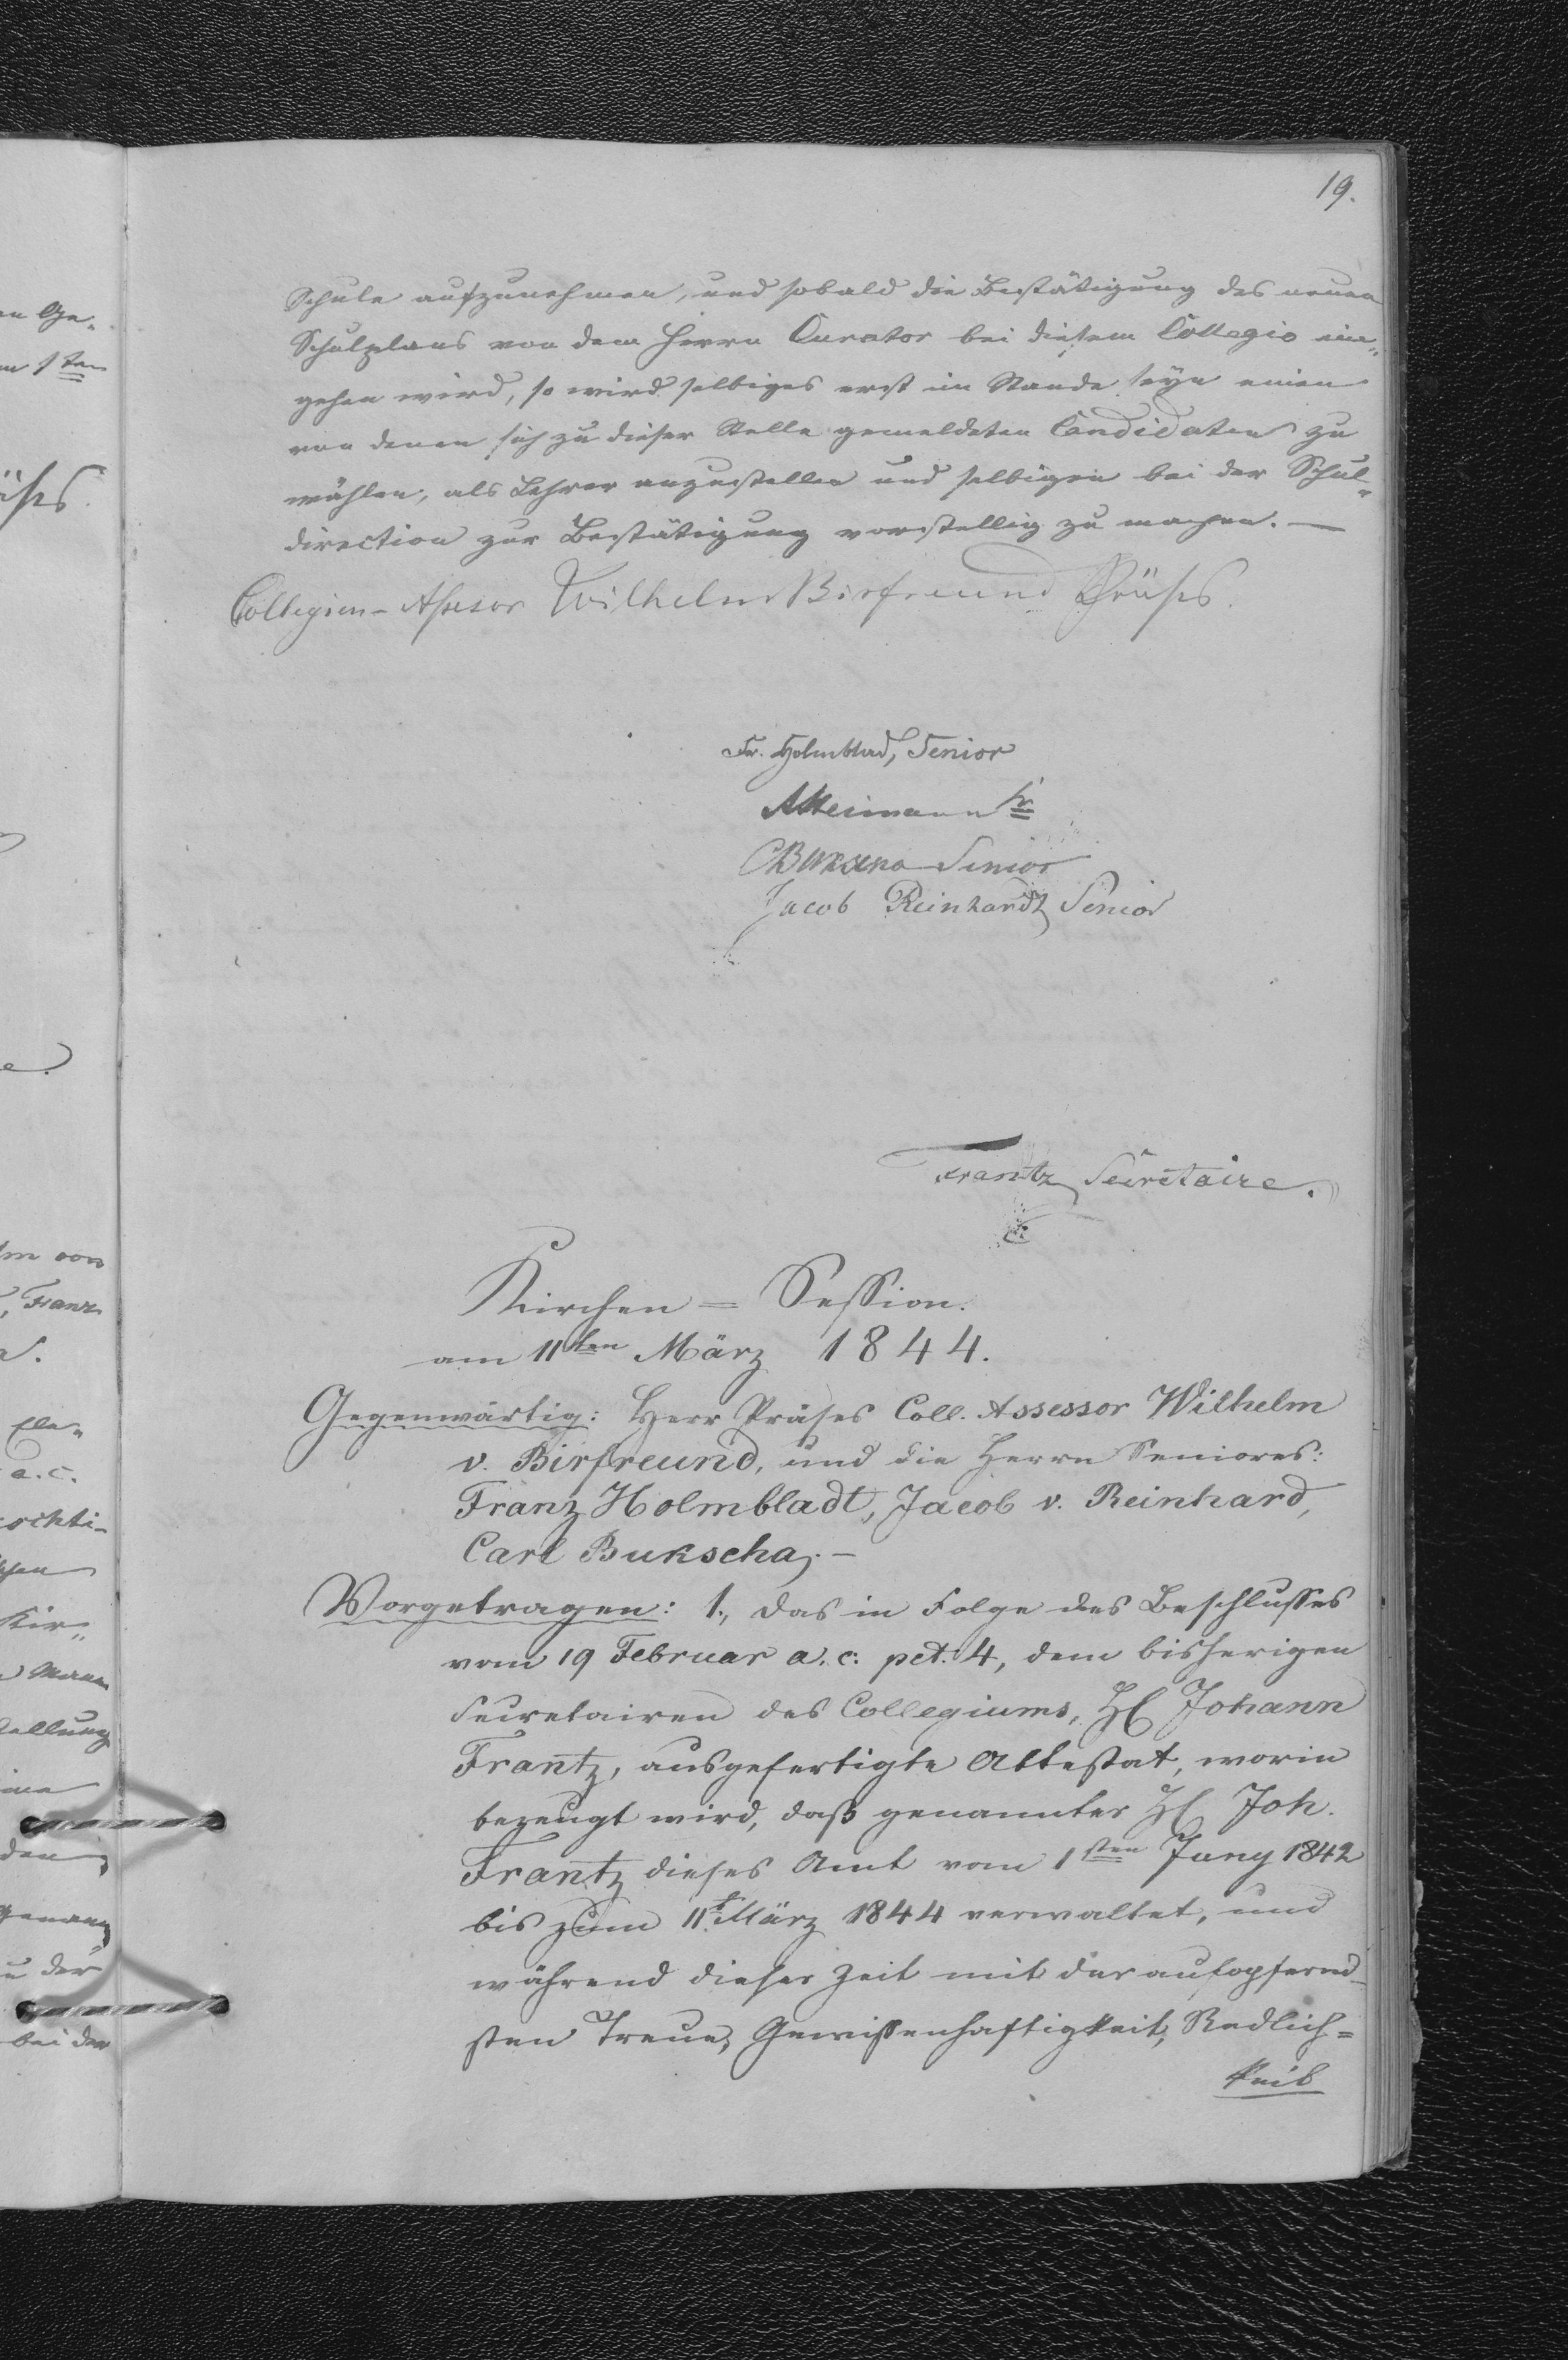 19.
Schule aufzunehmen, und sobald die Bestätigung des neuen
Schulplans von dem Herrn Curator bei diesem Collegio ein„
gehen wird, so wird selbiges erst im Stande seyn einen
von denen sich zu dieser Stelle gemeldeten Candidaten zu
wählen, als Lehrer anzustellen und selbigen bei der Schul„
direction zur Bestätigung vorstellig zu machen. —
Collegien-Assesor Wilhelm Birfreund Präses.
Fr. Holmblad, Senior
Senior
Jacob Reinhardt Senior
Frantz Secretaire.
Kirchen = Session.
am 11ten März 1844.
Gegenwärtig: Herr Präses Coll. Assessor Wilhelm
v. Birfreund, und die Herrn Seniores:
Franz Holmbladt, Jacob v. Reinhard,
Carl Bukscha. —
Vorgetragen: 1., das in Folge des Beschlusses
vom 19 Februar a. c. pct. 4, dem bisherigen
Secretairen des Collegiums, H Johann
Frantz, ausgefertigte Attestat, worin
bezeugt wird, daß genannter H Joh.
Frantz dieses Amt vom 1sten Juny 1842
bis zum 11t. März 1844 verwaltet, und
während dieser Zeit mit der aufopfernd-
sten Treue, Gewissenhaftigkeit, Redlich=
keit
en Ge„
1ten
äses.
Franz
a. c.
Kir„
tellung
den
u der
bei der